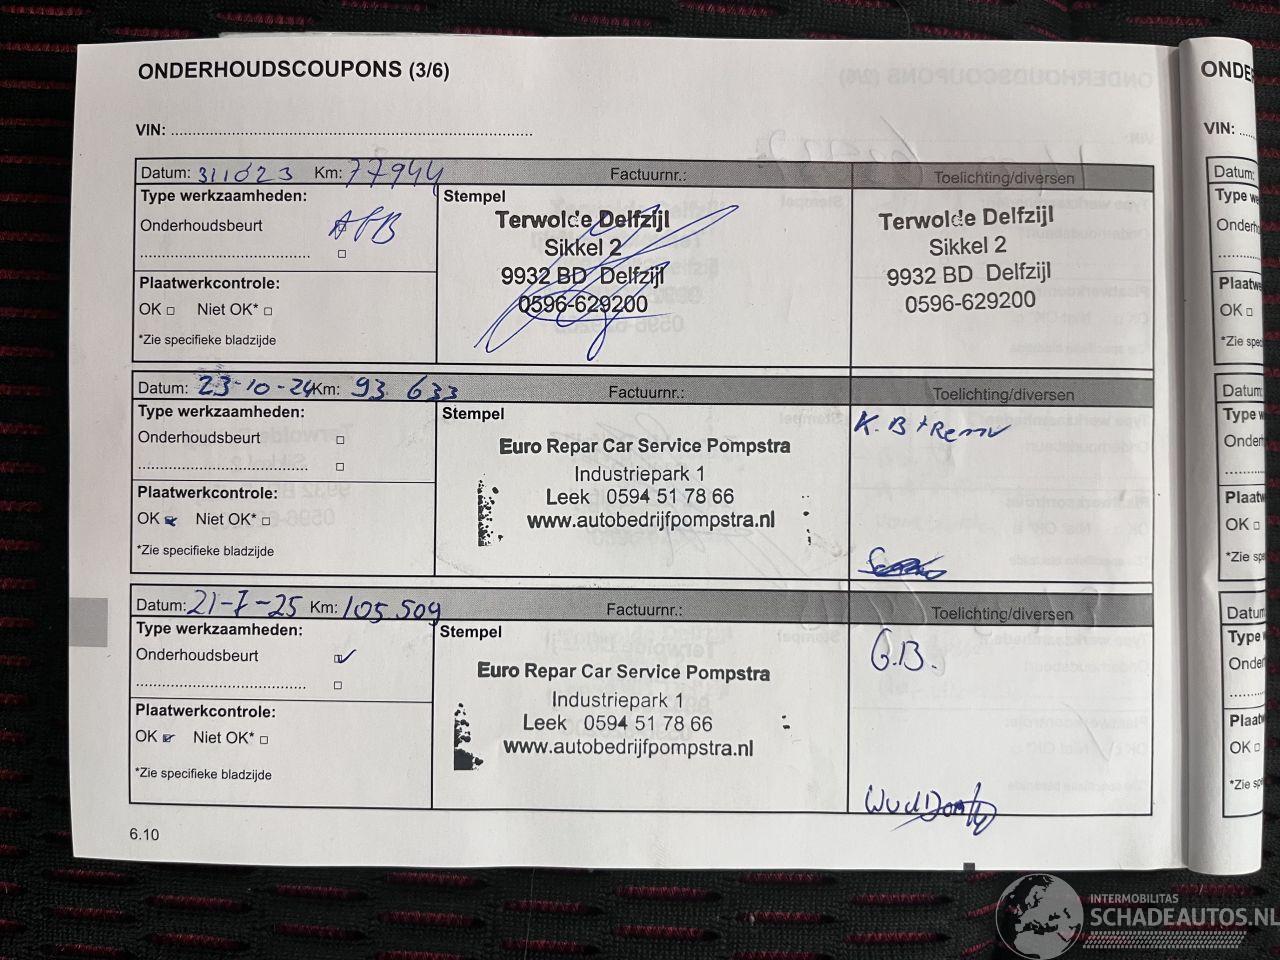 ONDERHOUDSCOUPONS (3/6)
VIN: ....................
Datum: 311023 Km: 77944 Factuurnr.: Toelichting/diversen
Type werkzaamheden:
Onderhoudsbeurt
Plaatwerkcontrole:
OK Niet OK*
*Zie specifieke bladzijde
Stempel
Terwolde Delfzijl
Sikkel 2
9932 BD Delfzijl
0596-629200
Terwolde Delfzijl
Sikkel 2
9932 BD Delfzijl
0596-629200
Datum: 23-10-24 Km: 93 633 Factuurnr.: Toelichting/diversen
Type werkzaamheden:
Onderhoudsbeurt
Plaatwerkcontrole:
OK Niet OK*
*Zie specifieke bladzijde
Stempel
Euro Repar Car Service Pompstra
Industriepark 1
Leek 0594 51 78 66
www.autobedrijfpompstra.nl
K.B + Remv
Datum: 21-7-25 Km: 105.509 Factuurnr.: Toelichting/diversen
Type werkzaamheden:
Onderhoudsbeurt
Plaatwerkcontrole:
OK Niet OK*
*Zie specifieke bladzijde
Stempel
Euro Repar Car Service Pompstra
Industriepark 1
Leek 0594 51 78 66
www.autobedrijfpompstra.nl
G.B.
6.10
ONDE
VIN: ....
Datum:
Type w
Onderh
Plaatwe
OK
*Zie spec
Datum:
Type w
Onderh
Plaatw
OK
*Zie spe
Datum
Type w
Onder
Plaatw
OK
*Zie sp
INTERMOBILITAS
SCHADEAUTOS.NL